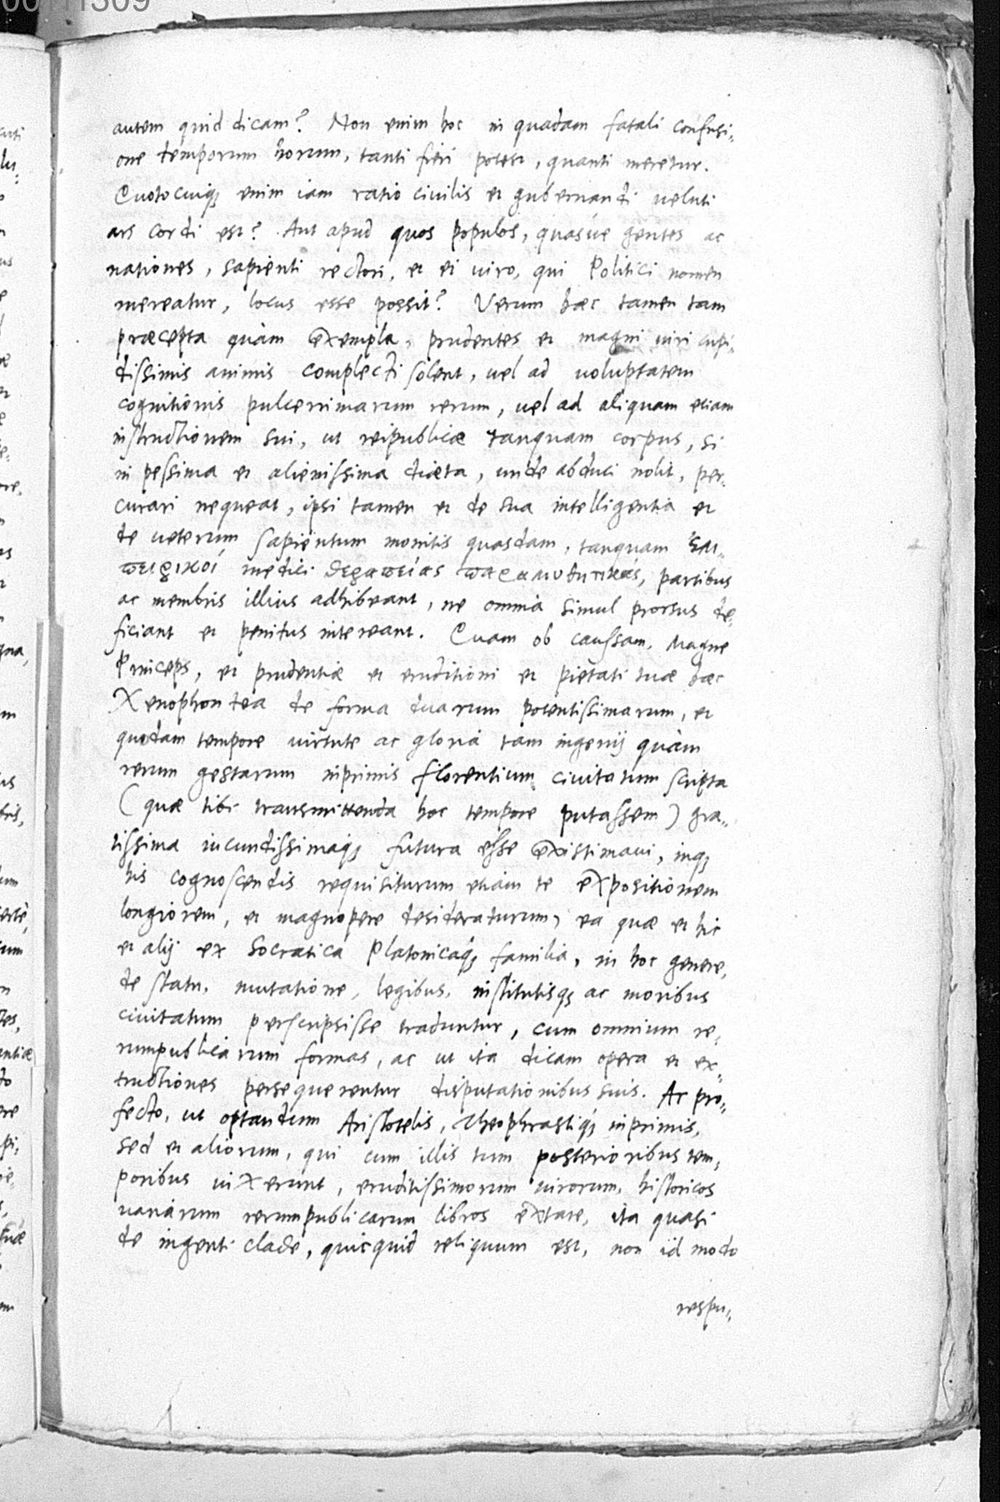 00111309
autem quid dicam? Non enim hoc in quadam fatali confusi-
one temporum horum, tanti fieri potest, quanti meretur.
Cuotocuiq; enim iam ratio civilis et gubernandi veluti
ars cordi est? Aut apud quos populos, quasue gentes ac
nationes, sapienti rectori, et ei viro, qui Politici nomen
mereatur, locus esse possit? Verum haec tamen tam
praecepta quàm exempla, prudentes et magni viri cupi-
dissimis animis complecti solent, vel ad voluptatem
cognitionis pulcerrimarum rerum, vel ad aliquam etiam
instructionem sui, ut reipublicae tanquam corpus, si
in pessima et alienissima diaeta, unde abduci nolit, per-
curari nequeat, ipsi tamen et de sua intelligentia et
de veterum sapientum monitis quasdam, tanquam
medici θεραπείας παραμυθητικάς, partibus
ac membris illius adhibeant, ne omnia simul prorsus de-
ficiant et penitus intereant. Cuam ob caussam, Magne
Princeps, et prudentiae et eruditioni et pietati tuae haec
Xenophontea de forma duarum potentissimarum, et
quodam tempore virtute ac gloria tam ingenij quàm
rerum gestarum inprimis florentium civitatum scripta
(quae tibi transmittenda hoc tempore putassem) gra-
tissima iucundissimaq; futura esse existimavi, inq;
his cognoscendis requisiturum etiam te expositionem
longiorem, et magnopere desideraturum, ea quae et hic
et alij ex Socratica Platonicaq; familia, in hoc genere,
de statu, mutatione, legibus, institutisq; ac moribus
civitatum perscripsisse traduntur, cum omnium re-
rumpublicarum formas, ac ut ita dicam opera et ex-
tructiones persequerentur disputationibus suis. Ac pro-
fecto, ut optandum Aristotelis, Theophrastiq; inprimis,
sed et aliorum, qui cum illis tum posterioribus tem-
poribus vixerunt, eruditissimorum virorum, historicos
variarum rerumpublicarum libros extare, ita quasi
de ingenti clade, quicquid reliquum est, non id modo
respu-